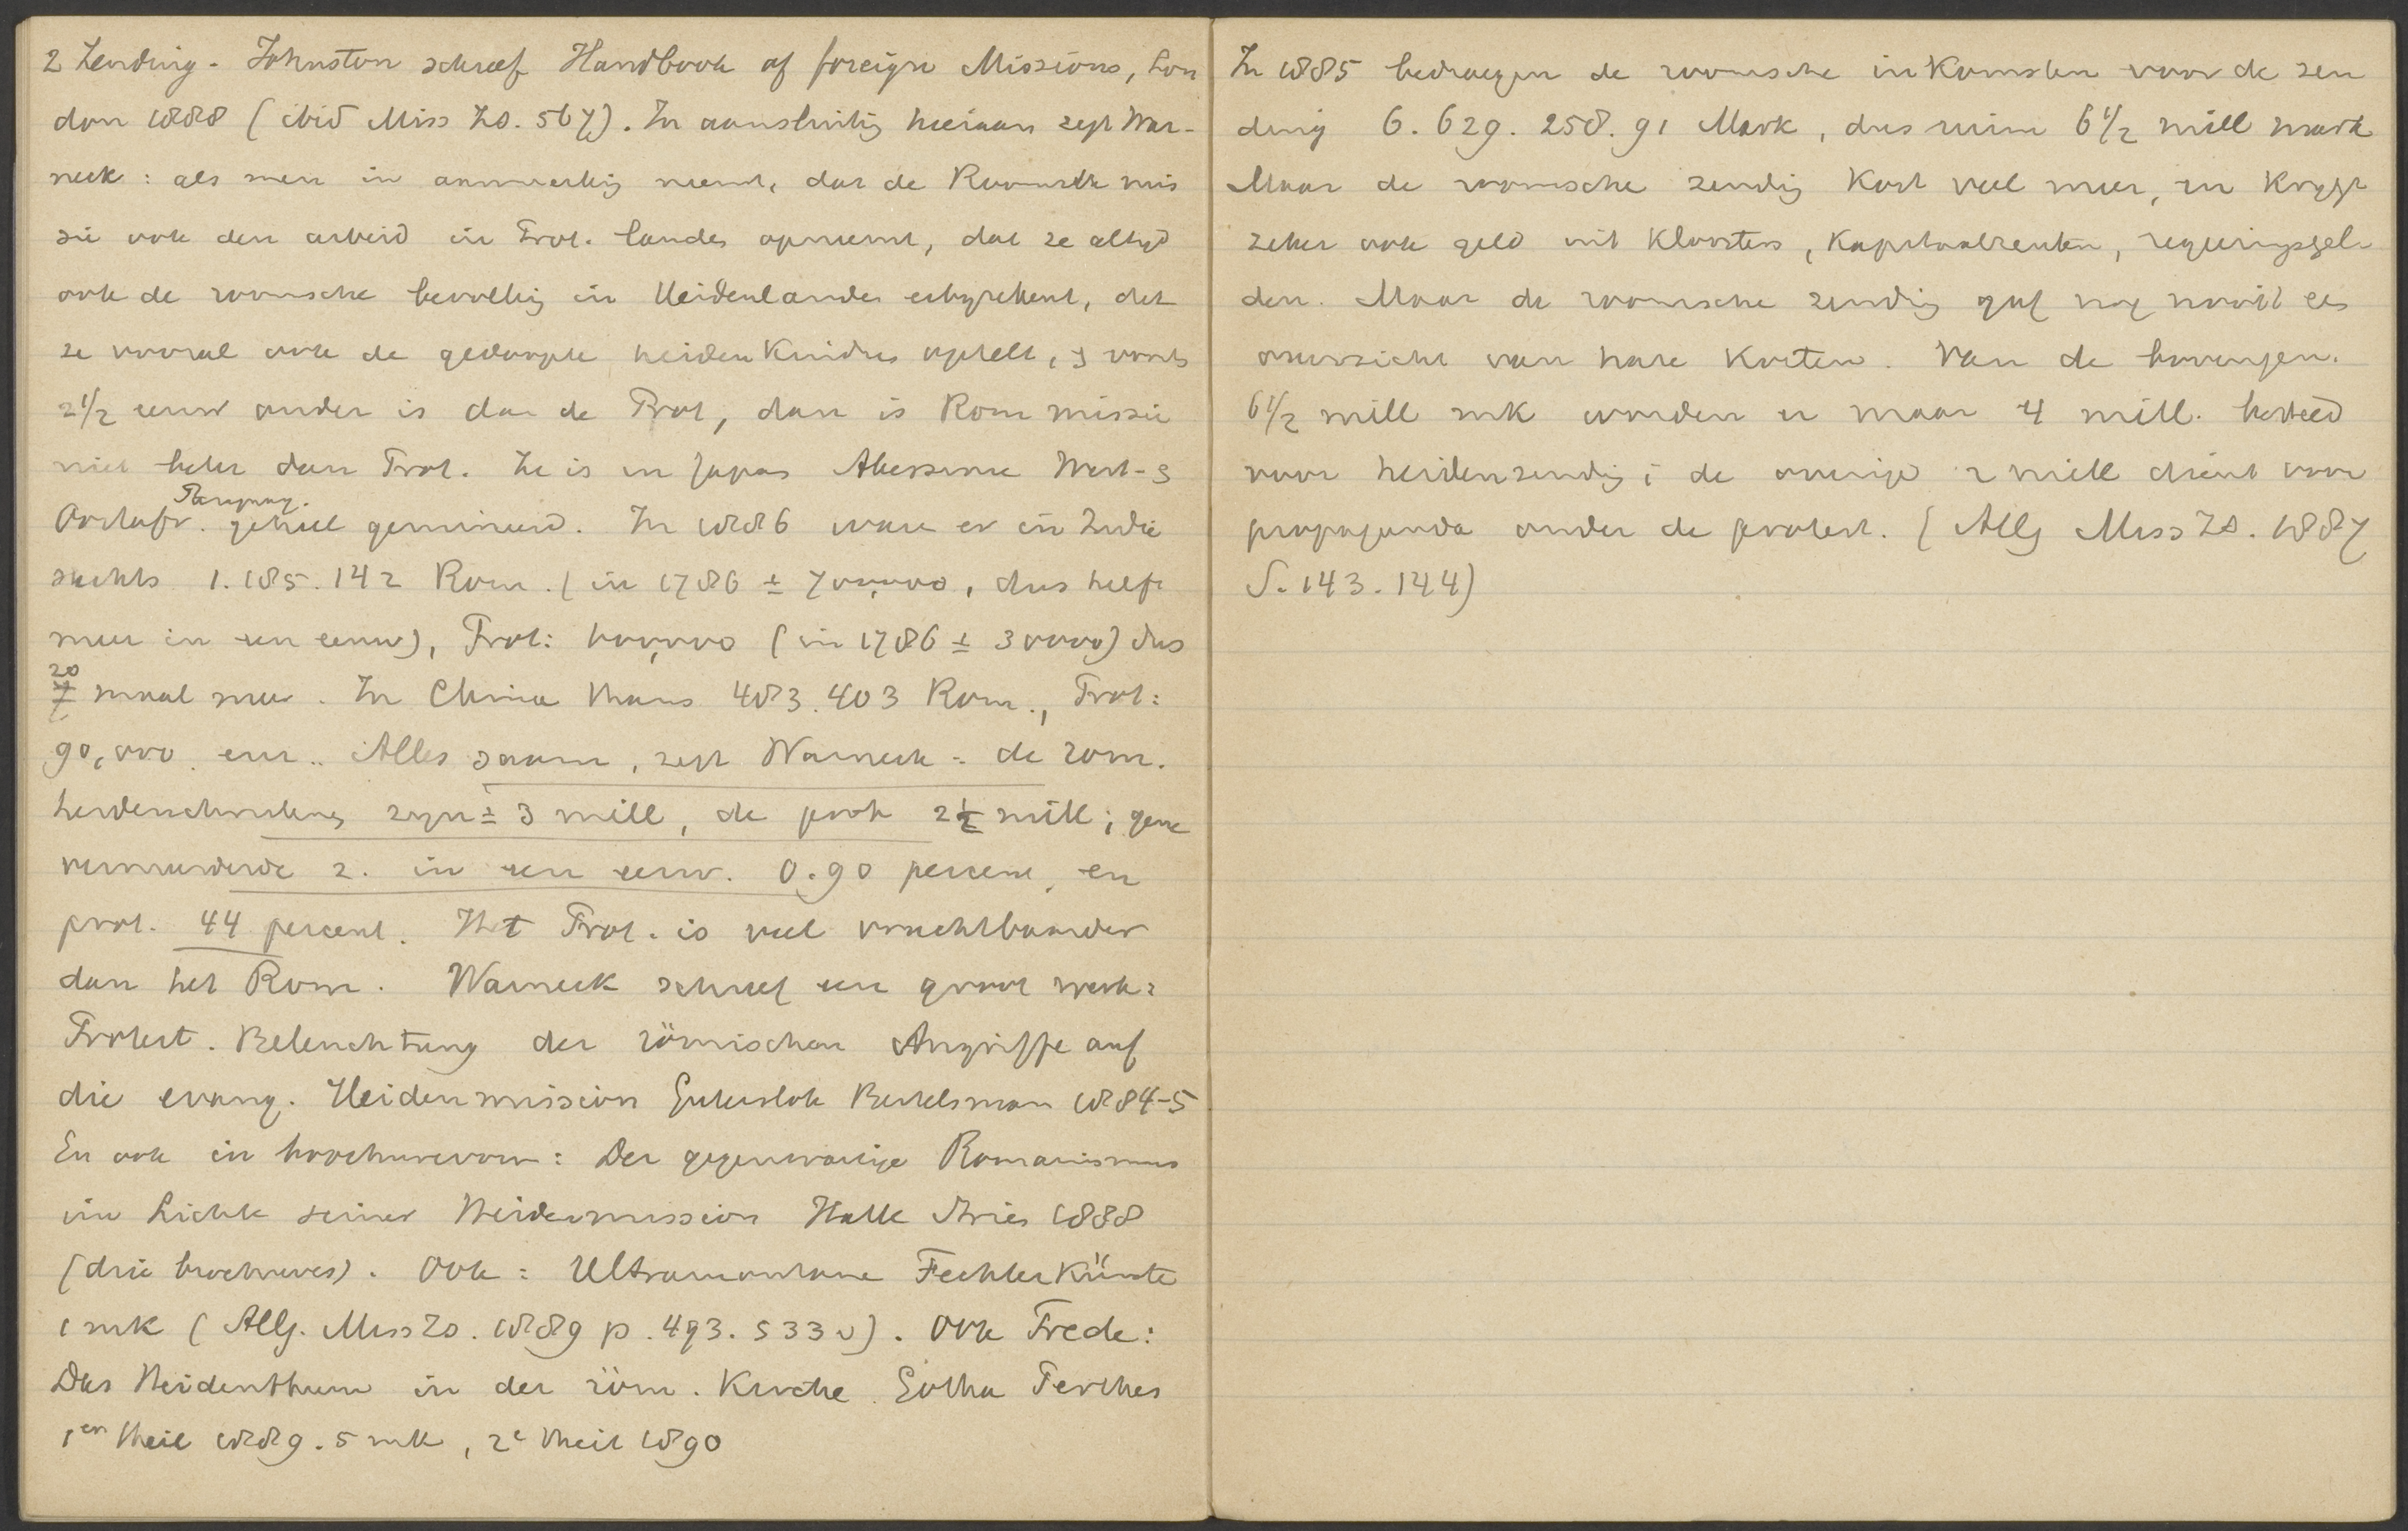 2 Zending. Johnston schreef Handbook of foreign Missions, Lon
don 1888 (ibid Miss Zs. 567). In aansluiting hieraan zegt War-
neck: als men in aanmerking neemt, dat de Roomsche mis
sie ook den arbeid in Prot. landen opneemt, dat ze altijd
ook de roomsche bevolking in Heidenlanden erbyrekent, dat
ze vooral ook de gedoopte heidenkindren optelt, & voorts
2 1/2 eeuw ouder is dan de Prot, dan is Rom missie
niet beter dan Prot. Ze is in Japan Abessinie West- &
Oostafr. Paraguay. geheel geruineerd. In 1886 waren er in Indie
slechts 1.185.142 Rom. (in 1786 ± 700,000, dus helft
meer in een eeuw), Prot: 600,000 (in 1786 ± 30000) dus
20 maal meer. In China thans 483.403 Rom., Prot:
90,000. enz.. Alles saam, zegt Warneck: de rom.
heidenchristenen zyn ± 3 mill, de prot 2 1/2 mill; gene
vermeerderde z. in een eeuw. 0.90 percent, en
prot. 44 percent. Het Prot. is veel vruchtbaarder
dan het Rom. Warneck schreef een groot werk:
Protest. Beleuchtung der römischen Angriffe auf
die evang. Heidenmission Gutersloh Bertelsman 1884-5
En ook in brochurevorm: Der gegenwartige Romanismus
im Lichte seiner Heidenmission Halle Stries 1888
(drie brochures). Ook: Ultramontane Fechterkünste
1 mk (Allg. Miss Zs. 1889 p. 493. 533 v). Ook Trede:
Das Heidenthum in der röm. Kirche. Gotha Perthes
1en Theil 1889. 5 mk, 2e Theil 1890
In 1885 bedroegen de roomsche inkomsten voor de zen
ding 6.629.258.91 Mark, dus ruim 6 1/2 mill mark
Maar de roomsche zending kost veel meer, en krygt
zeker ook geld uit kloosters, kapitaalrenten, regeeringsgel
den. Maar de roomsche zending gaf nog nooit een
overzicht van hare kosten. Van de bovengen.
6 1/2 mill mk worden er maar 4 mill. besteed
voor heidenzending; de overige 2 mill dient voor
propaganda onder de protest. (Allg Miss Zs. 1887
S. 143. 144)